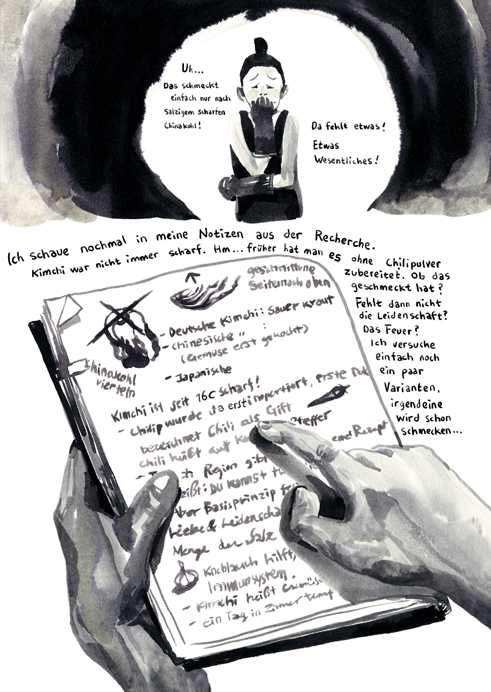 Uh...
Das schmeckt
einfach nur nach
Salzigem scharfen
Chinakohl!
Da fehlt etwas!
Etwas
Wesentliches!
Ich schaue nochmal in meine Notizen aus der Recherche.
Kimchi war nicht immer scharf. Hm... früher hat man es ohne Chilipulver
zubereitet. Ob das
geschmeckt hat?
Fehlt dann nicht
die Leidenschaft?
Das Feuer?
Ich versuche
einfach noch
ein paar
Varianten,
irgendeine
wird schon
schmecken...
geschnittene
Seite nach oben
- Deutsche Kimchi: Sauerkraut
- chinesische "
(Gemüse erst gekocht)
- Japanische
Chinakohl
vierteln
Kimchi ist seit 16C scharf!
- Chilip wurde da erst importiert, erste Dok
bezeichnet Chili als Gift
Chili heißt auf Pfeffer
Region Rezept
heißt: Du kannst
Aber Basisprinzip
Liebe & Leidenscha
Menge der Salz
Knoblauch hilft,
Immunsystem.
- Kimchi heißt
- ein Tag in Zimmertemp